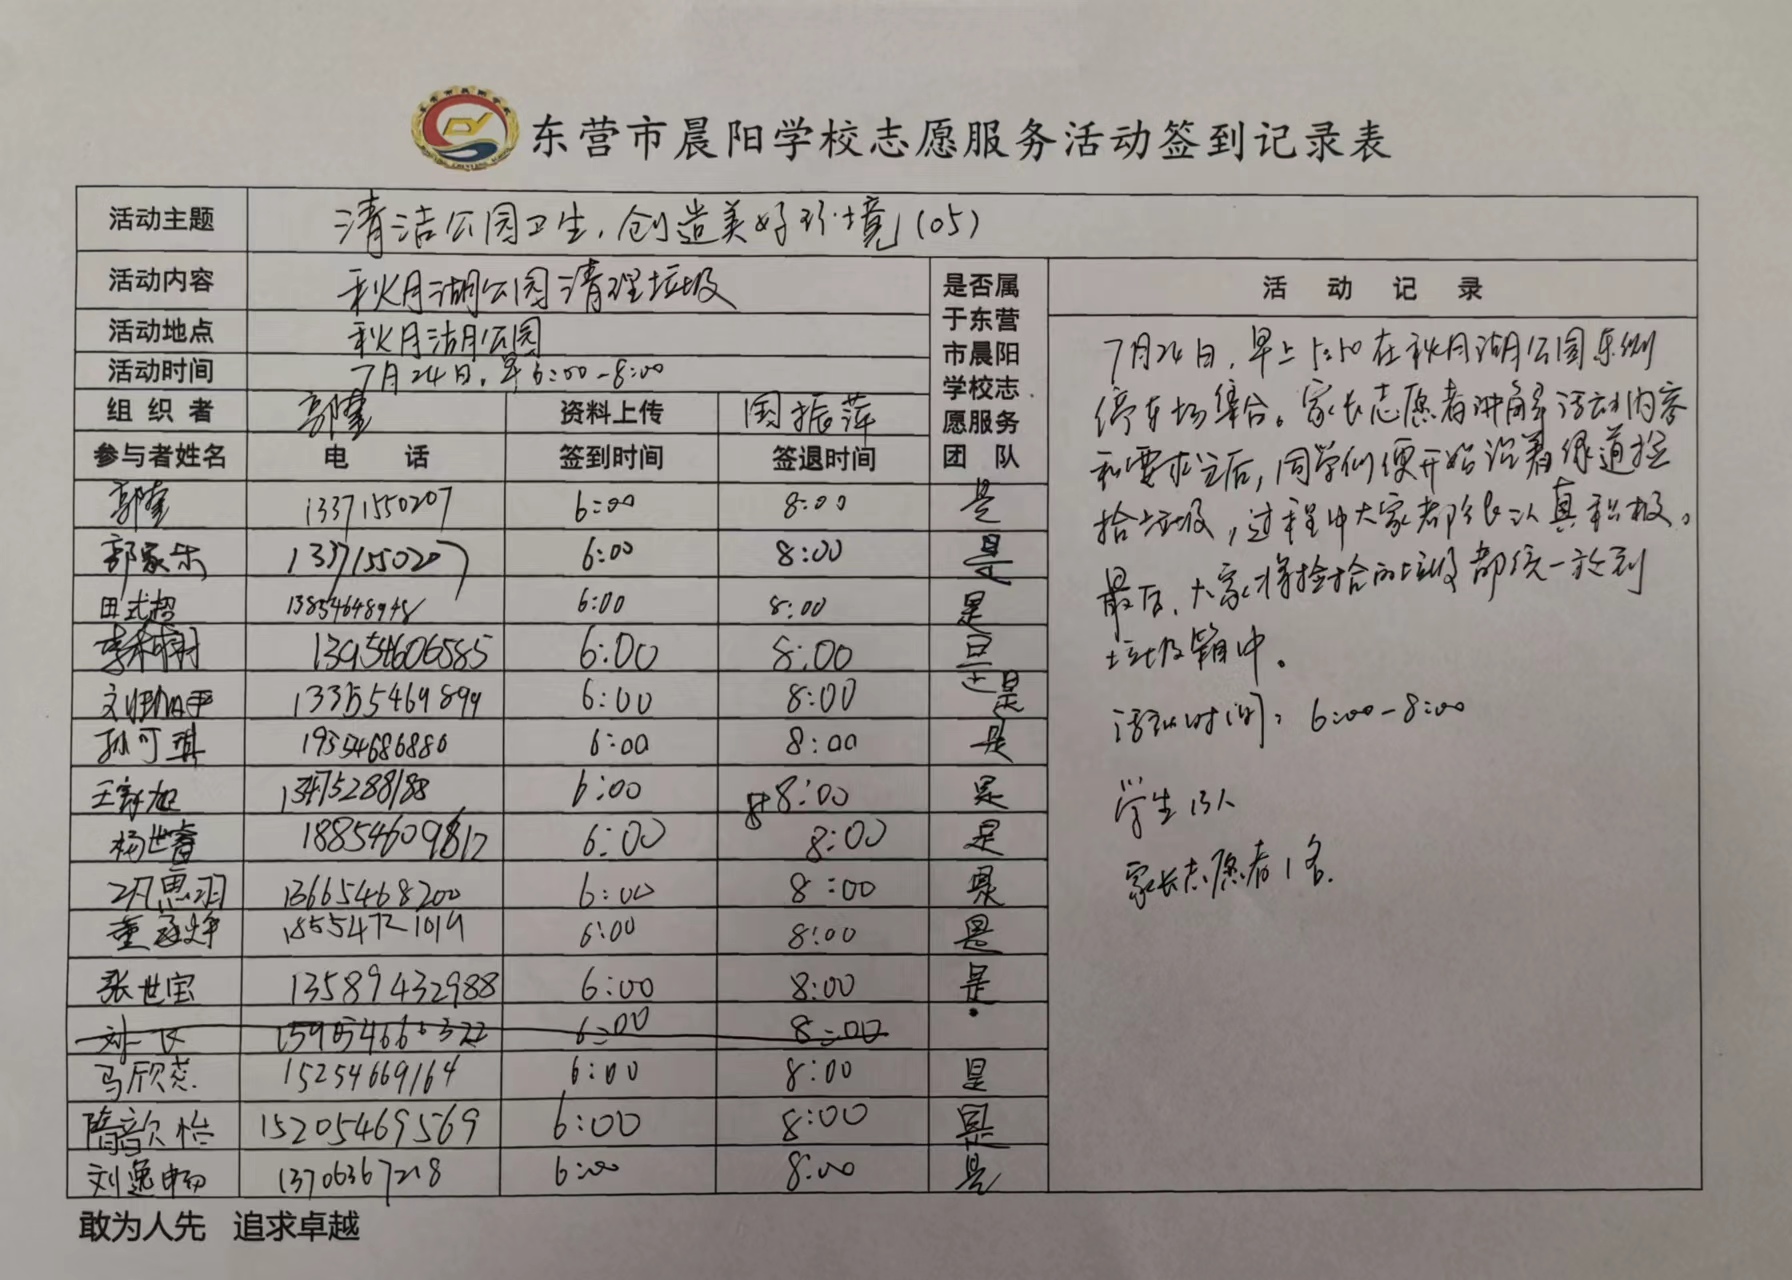 东营市晨阳学校志愿服务活动签到记录表
活动主题 清洁公园卫生,创造美好环境(05)
活动内容 秋月湖公园清理垃圾
活动地点 秋月湖公园
活动时间 7月24日,早6:00-8:00
组织者 郭奎 资料上传 国振萍
是否属于东营市晨阳学校志愿服务团队
参与者姓名 电话 签到时间 签退时间
郭奎 13371550207 6:00 8:00 是
郭家乐 13371550207 6:00 8:00 是
田式超 6:00 8:00 是
13954606585 6:00 8:00 是
13355469899 6:00 8:00 是
孙可琪 19554686886 6:00 8:00 是
13475288188 6:00 8:00 是
杨世睿 18854609812 6:00 8:00 是
思羽 13665468200 6:00 8:00 是
董 6:00 8:00 是
张世宝 13589432988 6:00 8:00 是
6:00 8:00
马欣蕊 15254669164 6:00 8:00 是
隋歆怡 15205469569 6:00 8:00 是
刘逸畅 13706367218 6:00 8:00 是
活动记录
7月24日,早上5:50在秋月湖公园东侧
停车场集合。家长志愿者讲解活动内容
和要求之后,同学们便开始沿着绿道捡
拾垃圾,过程中大家都很认真积极。
最后,大家将捡拾的垃圾都统一放到
垃圾箱中。
活动时间:6:00-8:00
学生13人
家长志愿者1名.
敢为人先 追求卓越